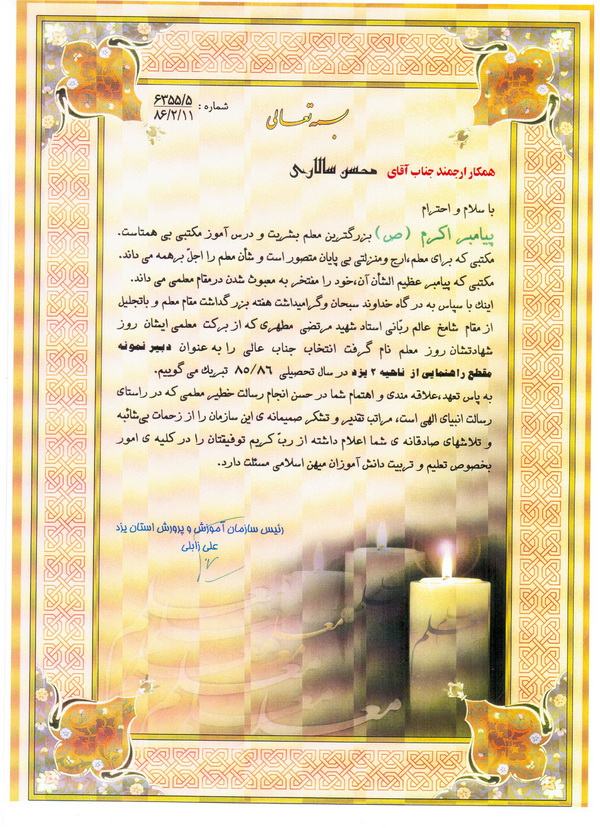 بسمه تعالی
شماره : ۶۳۵۵/۵
۸۶/۲/۱۱
همکار ارجمند جناب آقای محسن سالاری
با سلام و احترام
پیامبر اکرم (ص) بزرگترین معلم بشریت و درس آموز مکتبی بی همتاست.
مکتبی که برای معلم،ارج ومنزلتی بی پایان متصور است و شأن معلم را اجلّ برهمه می داند.
مکتبی که پیامبر عظیم الشأن آن،خود را مفتخر به معبوث شدن درمقام معلمی می داند.
اینك با سپاس به در گاه خداوند سبحان وگرامیداشت هفته بزر گداشت مقام معلم و باتجلیل
از مقام شامخ عالم ربّانی استاد شهید مرتضی مطهری که از برکت معلمی ایشان روز
شهادتشان روز معلم نام گرفت انتخاب جناب عالی را به عنوان دبیر نمونه
مقطع راهنمایی از ناحیه ۲ یزد در سال تحصیلی ۸۵/۸۶ تبریك می گوییم.
به پاس تعهد،علاقه مندی و اهتمام شما در حسن انجام رسالت خطیر معلمی که در راستای
رسالت انبیای الهی است، مراتب تقدیر و تشکر صمیمانه ی این سازمان را از زحمات بی‌شائبه
و تلاشهای صادقانه ی شما اعلام داشته از ربّ کریم توفیقتان را در کلیه ی امور
بخصوص تعلیم و تربیت دانش آموزان میهن اسلامی مسئلت دارد.
رئیس سازمان آموزش و پرورش استان یزد
علی زابلی
معلم
معلم
معلم
معلم